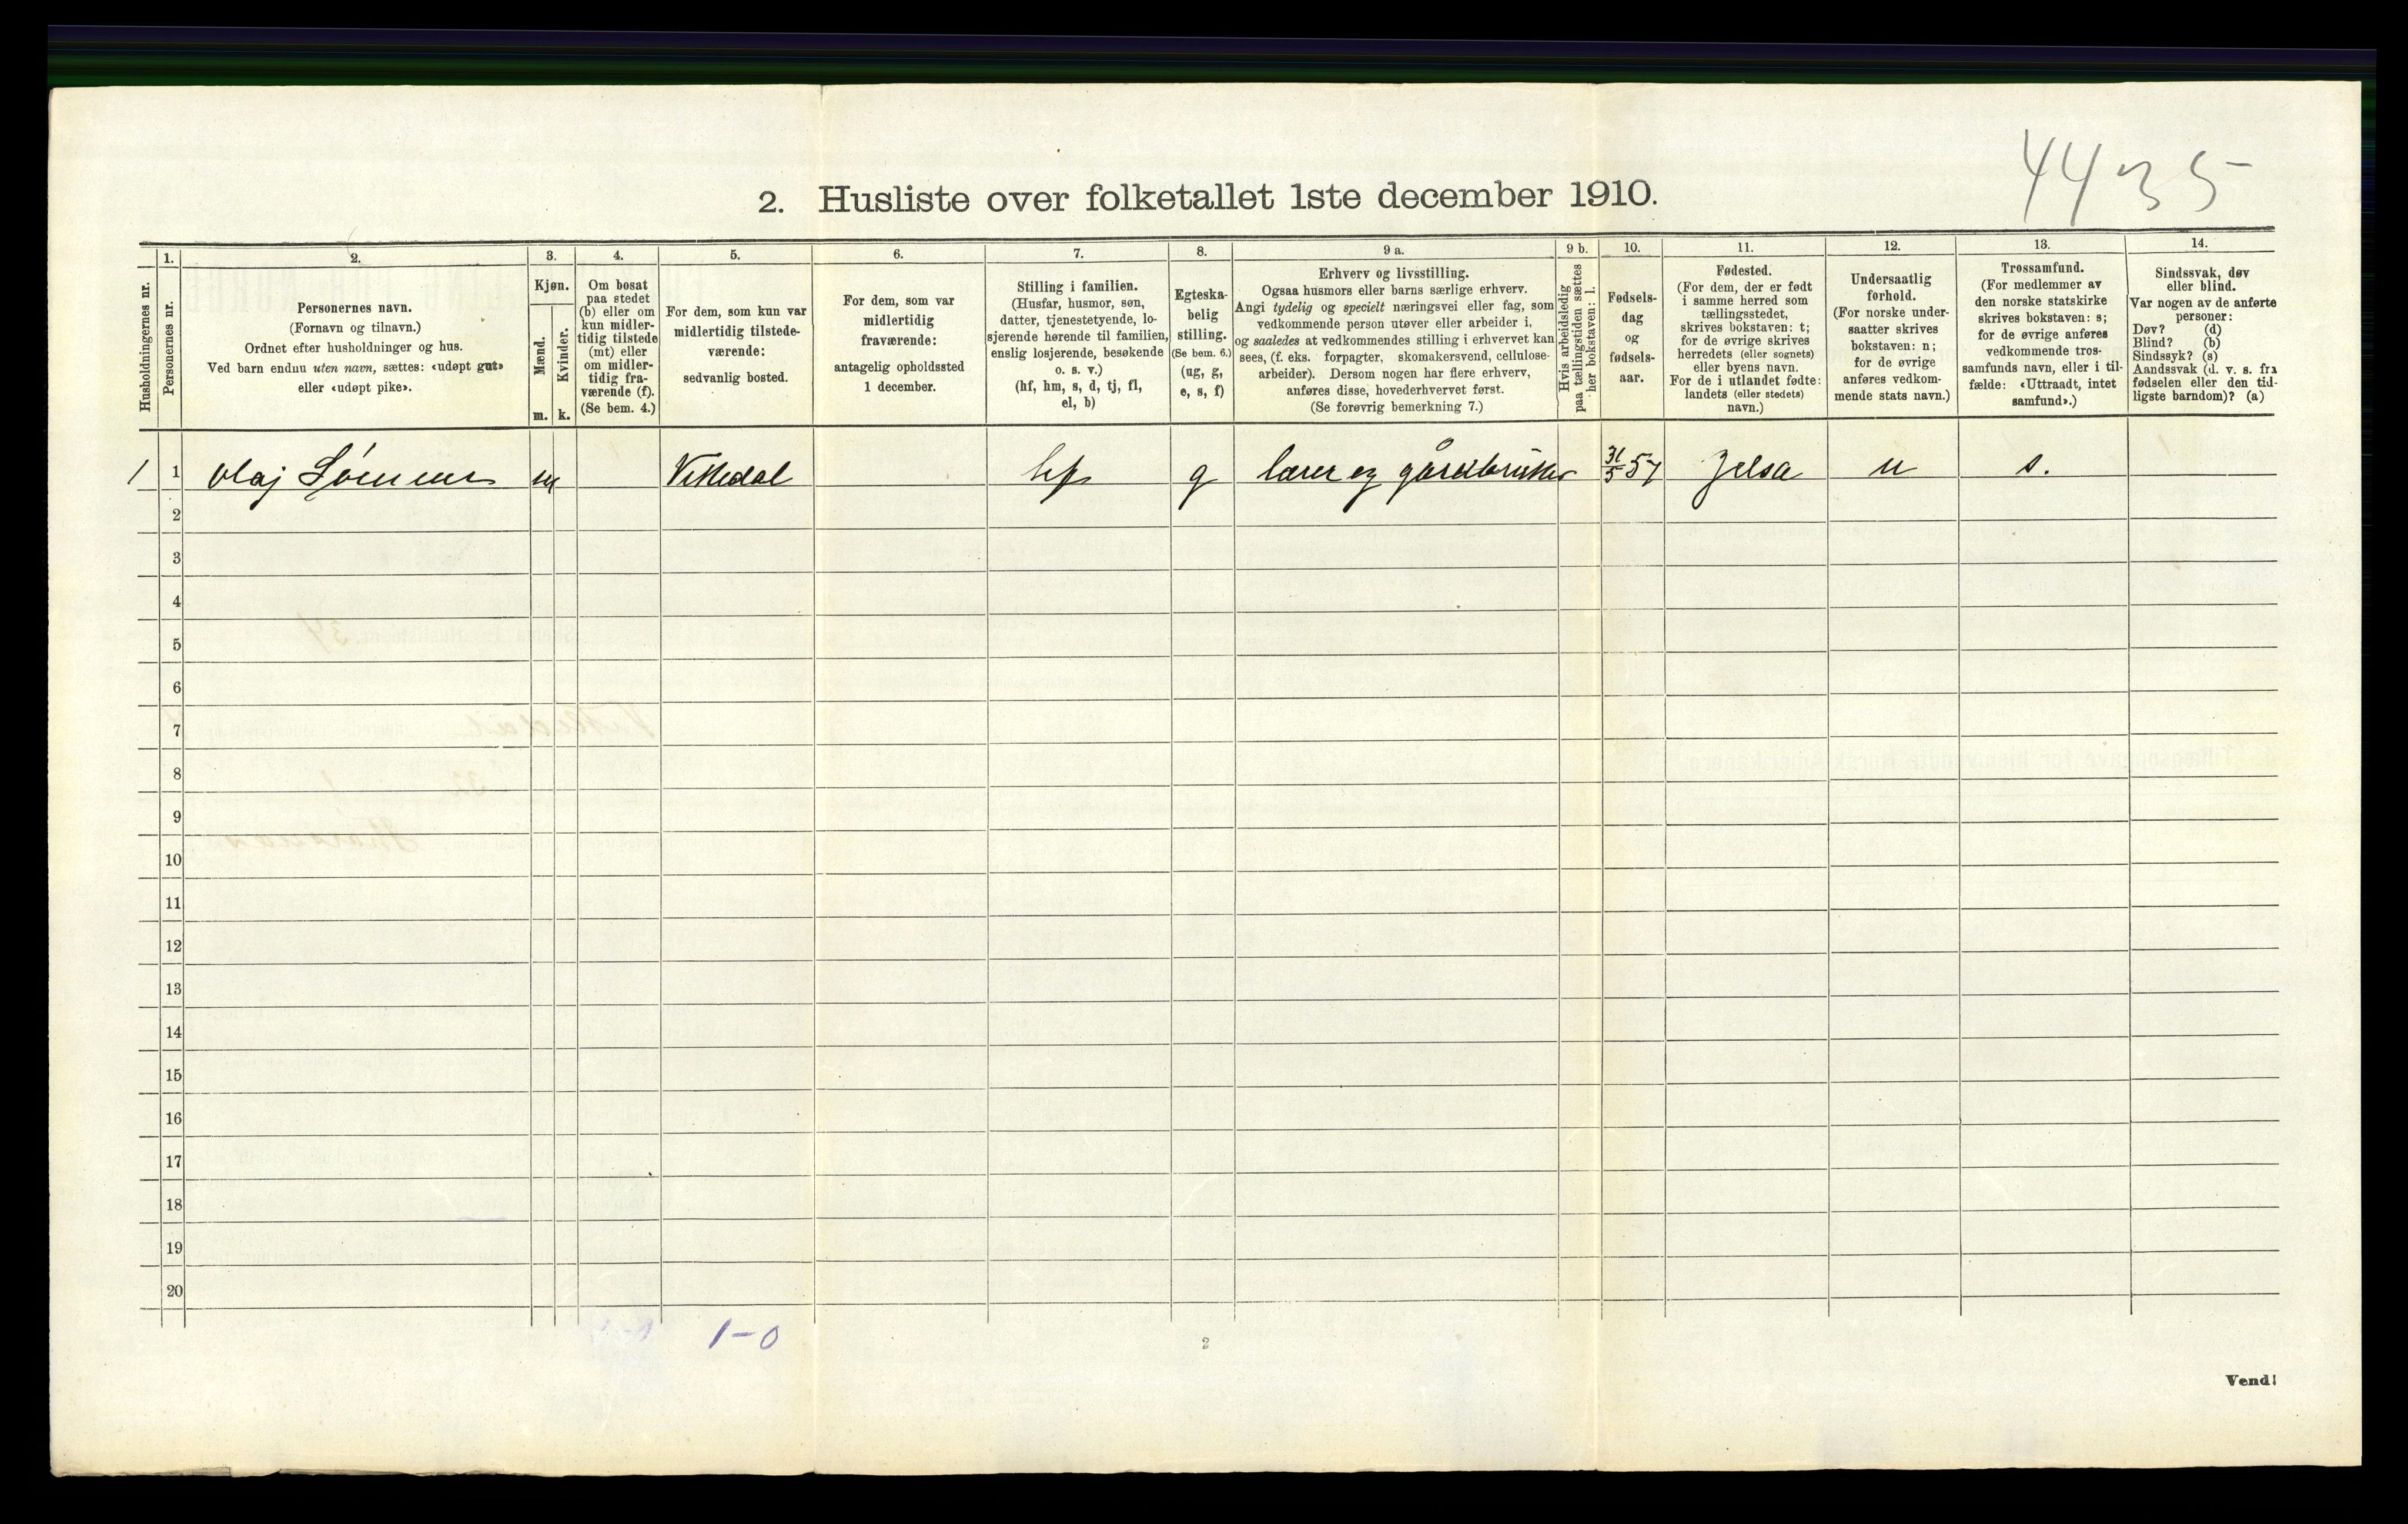 4435
2. Husliste over folketallet 1ste december 1910.
Husholdningernes nr.
1.
Personernes nr.
2.
Personernes navn.
(Fornavn og tilnavn.)
Ordnet efter husholdninger og hus.
Ved barn endnu uten navn, sættes: «udøpt gut»
eller «udøpt pike».
3.
Kjøn.
Mænd.
Kvinder.
m.
k.
4.
Om bosat
paa stedet
(b) eller om
kun midler-
tidig tilstede
(mt) eller
om midler-
tidig fra-
værende (f).
(Se bem. 4.)
5.
For dem, som kun var
midlertidig tilstede-
værende:
sedvanlig bosted.
6.
For dem, som var
midlertidig
fraværende:
antagelig opholdssted
1 december.
7.
Stilling i familien.
(Husfar, husmor, søn,
datter, tjenestetyende, lo-
sjerende hørende til familien,
enslig losjerende, besøkende
o. s. v.)
(hf, hm, s, d, tj, fl,
el, b)
8.
Egteska-
belig
stilling.
(Se bem. 6.)
(ug, g,
e, s, f)
9 a.
Erhverv og livsstilling.
Ogsaa husmors eller barns særlige erhverv.
Angi tydelig og specielt næringsvei eller fag, som
vedkommende person utøver eller arbeider i,
og saaledes at vedkommendes stilling i erhvervet kan
sees, (f. eks. forpagter, skomakersvend, cellulose-
arbeider). Dersom nogen har flere erhverv,
anføres disse, hovederhvervet først.
(Se forøvrig bemerkning 7.)
9 b.
Hvis arbeidsledig
paa tællingstiden sættes
her bokstaven: l.
10.
Fødsels-
dag
og
fødsels-
aar.
11.
Fødested.
(For dem, der er født
i samme herred som
tællingsstedet,
skrives bokstaven: t;
for de øvrige skrives
herredets (eller sognets)
eller byens navn.
For de i utlandet fødte:
landets (eller stedets)
navn.)
12.
Undersaatlig
forhold.
(For norske under-
saatter skrives
bokstaven: n;
for de øvrige
anføres vedkom-
mende stats navn.)
13.
Trossamfund.
(For medlemmer av
den norske statskirke
skrives bokstaven: s;
for de øvrige anføres
vedkommende tros-
samfunds navn, eller i til-
fælde: «Uttraadt, intet
samfund».)
14.
Sindssvak, døv
eller blind.
Var nogen av de anførte
personer:
Døv? (d)
Blind? (b)
Sindssyk? (s)
Aandssvak (d. v. s. fra
fødselen eller den tid-
ligste barndom)? (a)
1 1 Olaf m Vikedal hf g lærer og gårdbruker 31/5 57 Jelsa n s.
2
3
4
5
6
7
8
9
10
11
12
13
14
15
16
17
18
19
20
1-0
2
Vend!